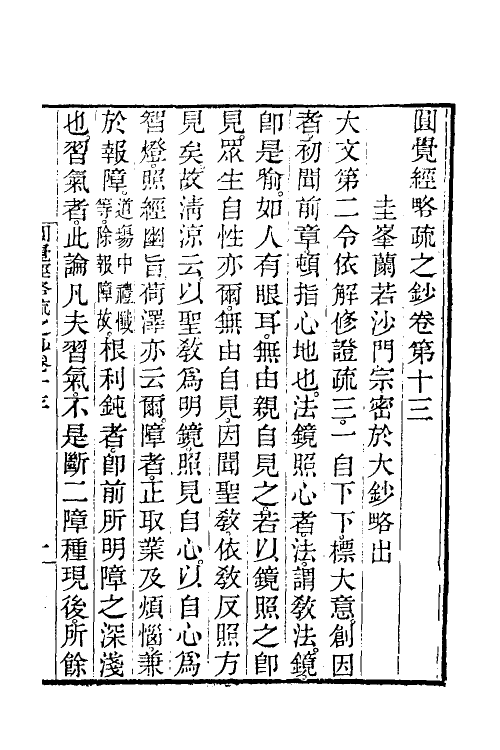 圓覺經略疏之鈔卷第十三
圭峯蘭若沙門宗密於大鈔略出
大文第二令依解修證疏三。一自下下。標大意。創因
者。初聞前章頓指心地也。法鏡照心者。法謂敎法。鏡
卽是喻。如人有眼耳。無由親自見之。若以鏡照之卽
見。眾生自性亦爾。無由自見。因聞聖敎。依敎反照方
見矣。故清涼云。以聖敎爲明鏡。照見自心。以自心爲
智燈。照經幽旨。荷澤亦云爾。障者。正取業及煩惱。兼
於報障。道場中禮懺等。除報障故。根利鈍者。卽前所明障之深淺
也。習氣者。此論凡夫習氣。不是斷二障種現後。所餘